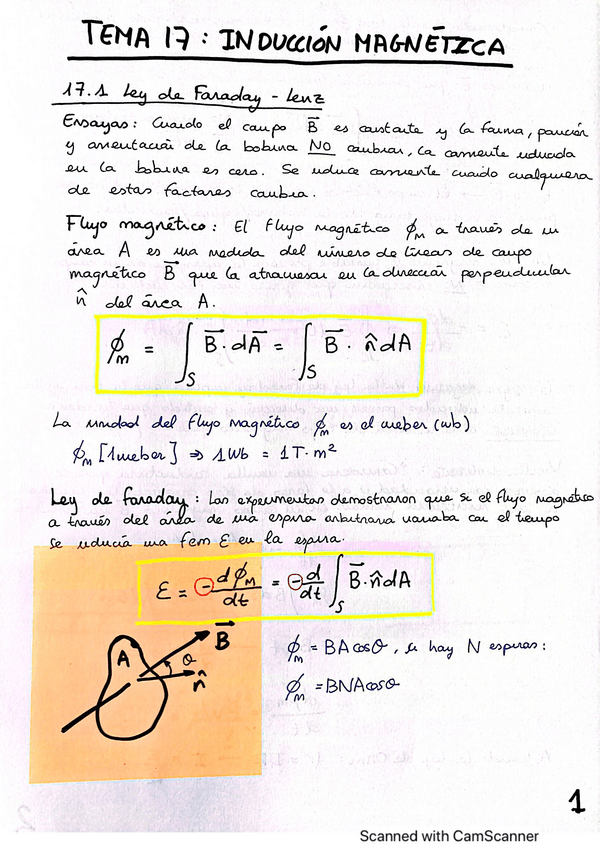 TEMA 17 : INDUCCIÓN MAGNÉTICA
17.1 Ley de Faraday - Lenz
Ensayos: Cuando el campo B⃗ es constante y la forma, posición
y orientación de la bobina NO cambian, la corriente inducida
en la bobina es cero. Se induce corriente cuando cualquiera
de estos factores cambia.
Flujo magnético: El flujo magnético ϕm a través de un
área A es una medida del número de líneas de campo
magnético B⃗ que la atraviesan en la dirección perpendicular
n̂ del área A.
ϕm = ∫S B⃗ · dA⃗ = ∫S B⃗ · n̂ dA
La unidad del flujo magnético ϕm es el weber (wb)
ϕm [1weber] ⇒ 1Wb = 1T·m²
Ley de faraday : Los experimentos demostraron que si el flujo magnético
a través del área de una espira arbitraria variaba con el tiempo
se inducía una fem ε en la espira.
ε = - dϕm/dt = - d/dt ∫S B⃗ · n̂ dA
B⃗
A
θ
n̂
ϕm = BA cosθ , si hay N espiras:
ϕm = BNA cosθ
1
Scanned with CamScanner